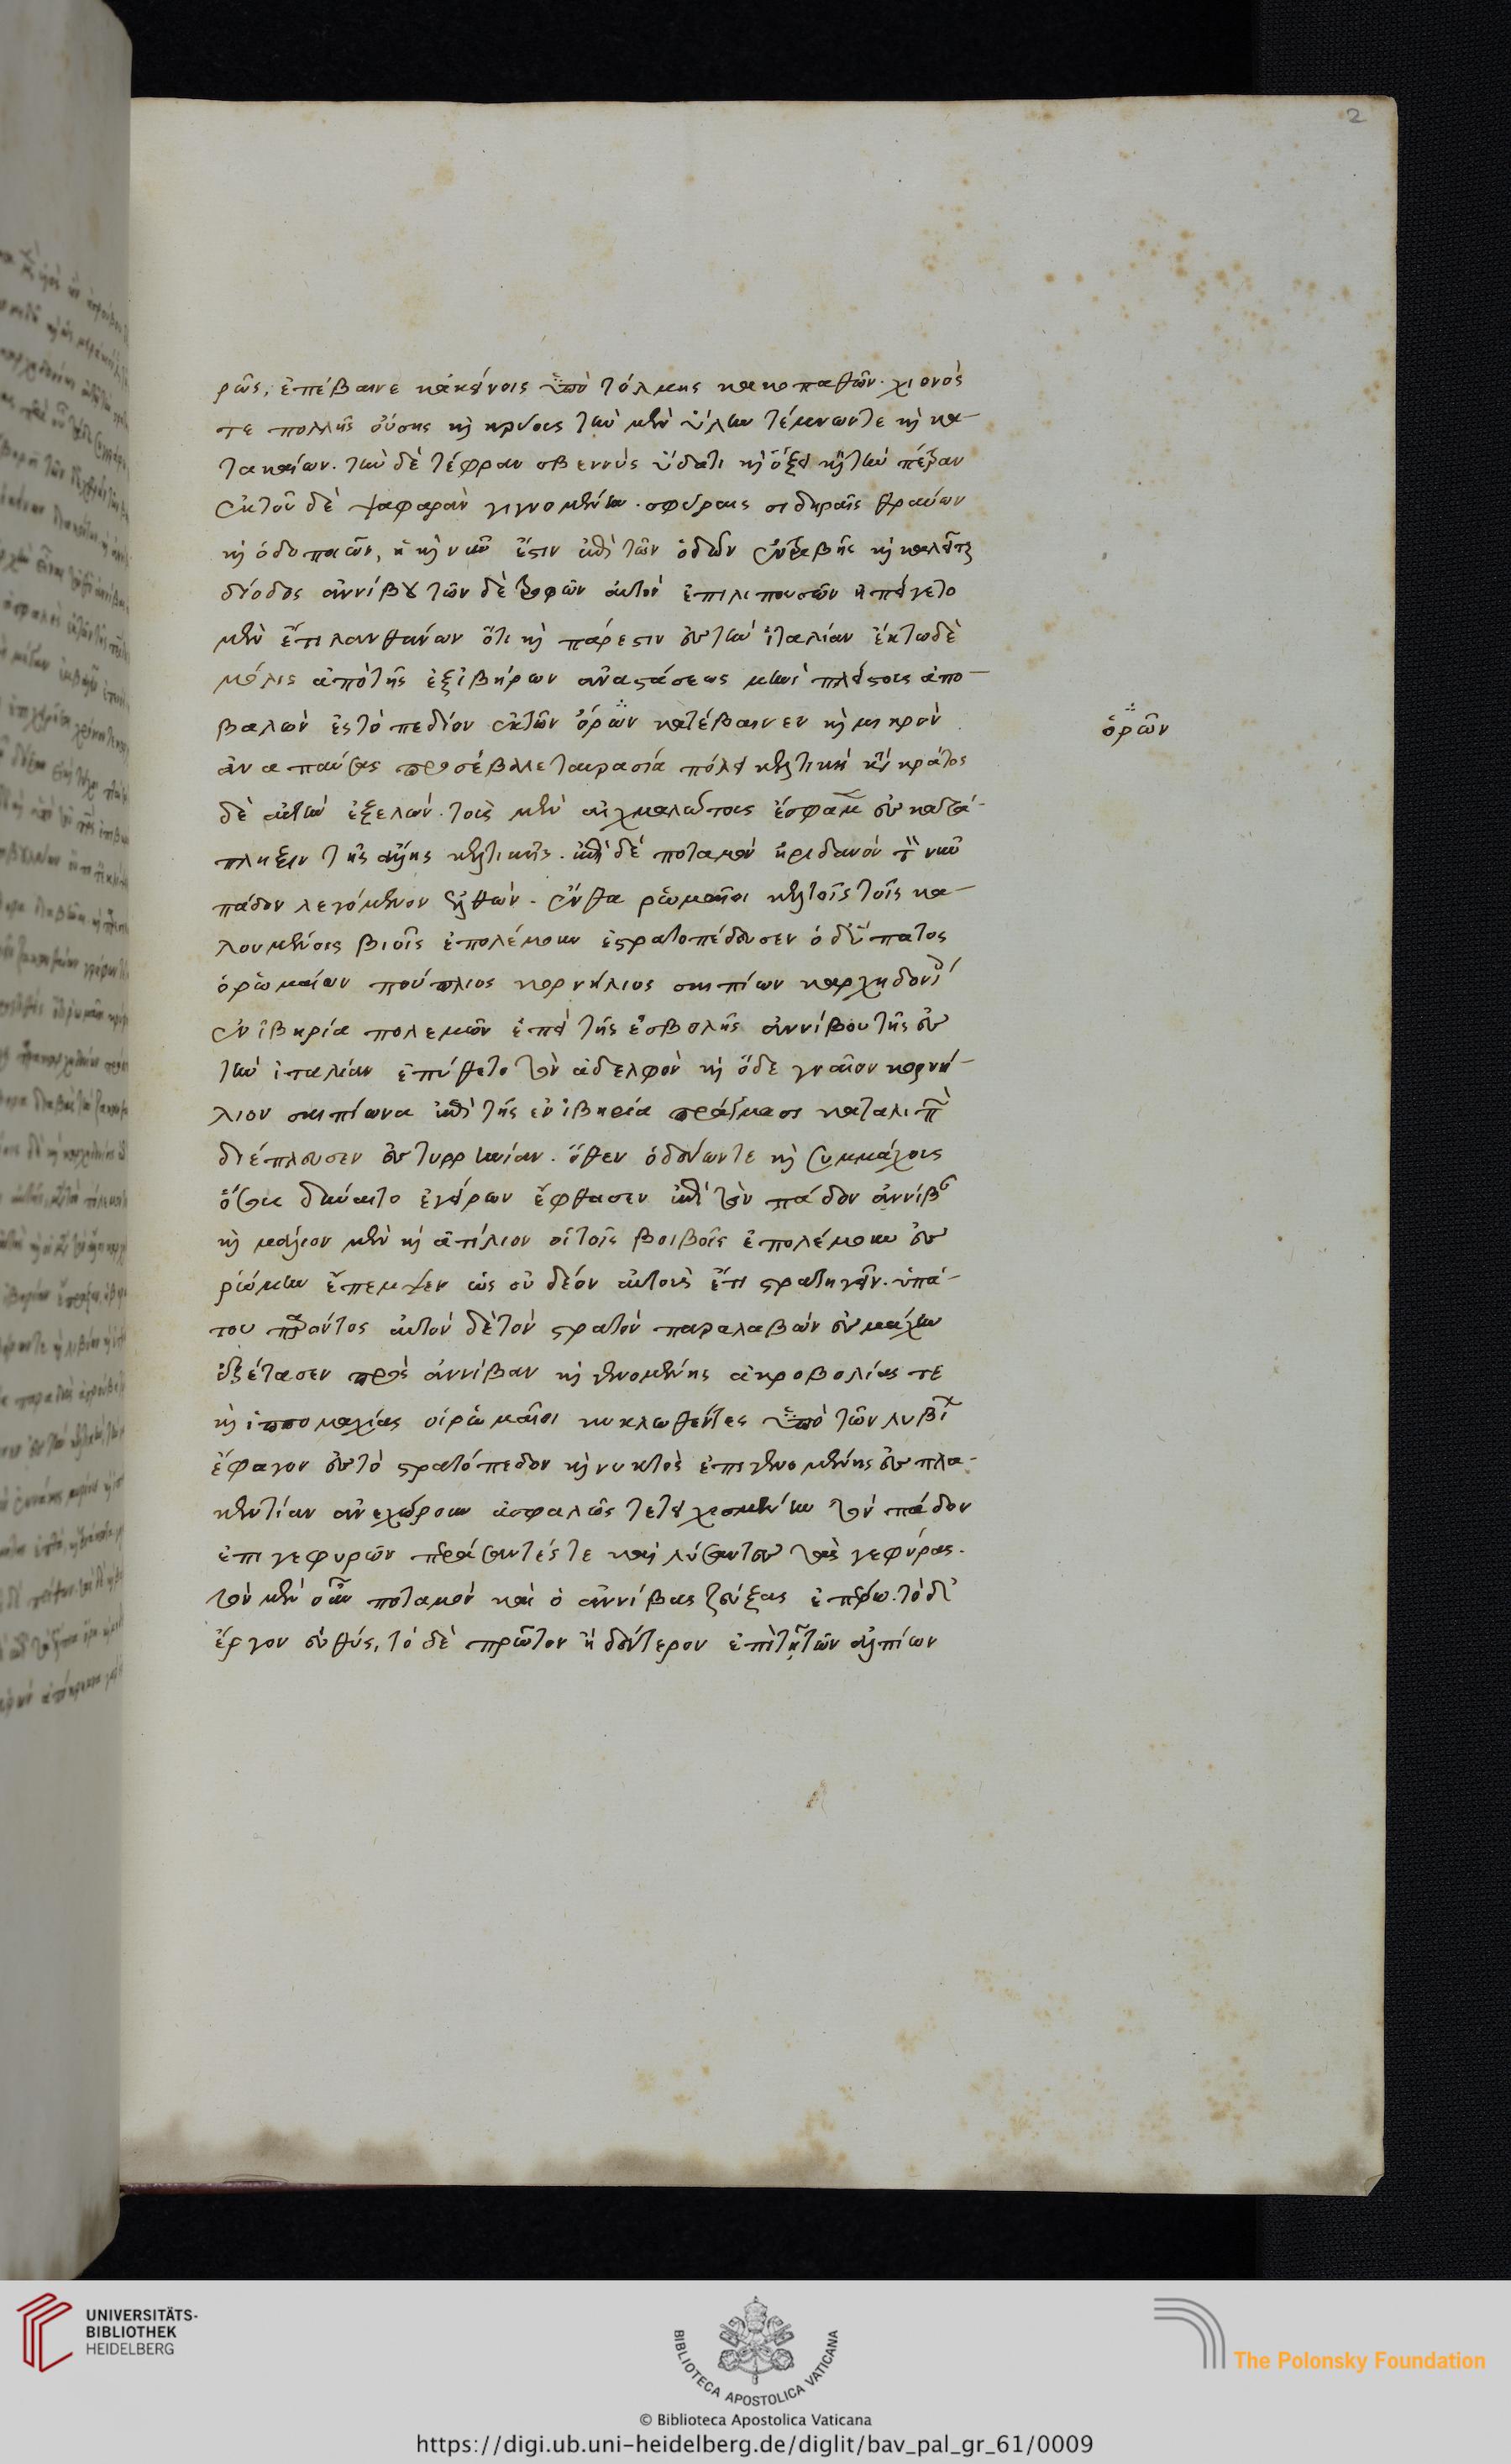 2
ρῶς, ἐπέβαινε κἀκείνοις ὑπὸ τόλμης κακοπαθῶν. χιονός
τε πολλῆς οὔσης καὶ κρύους τὴν μὲν ὕλην τέμνων τε καὶ κα-
τακαίων. τὴν δὲ τέφραν σβεννὺς ὕδατι καὶ ὄξει καὶ τὴν πέτραν
ἐκ τοῦ δὲ ψαφαρὰν γιγνομένην. σφύραις σιδηραῖς θραύων
καὶ ὁδοποιῶν, ἣ καὶ νῦν ἔστιν ἐπὶ τῶν ὁδῶν ἐντριβὴς καὶ καλεῖται
δίοδος ἀννίβου τῶν δὲ τροφῶν αὐτὸν ἐπιλιπουσῶν ἠπείγετο
μὲν ἔτι λανθάνων ὅτι καὶ πάρεσιν ἐς τὴν ἰταλίαν ἕκτῳ δὲ
μόλις ἀπὸ τῆς ἐξ ἰβήρων ἀναστάσεως μηνὶ πλείστους ἀπο-
βαλὼν ἐς τὸ πεδίον ἐκ τῶν ὀρῶν κατέβαινεν καὶ μικρὸν
ὀρῶν
ἀναπαύσας προσέβαλε ταυρασίᾳ πόλει κελτικῇ κατὰ κράτος
δὲ αὐτὴν ἐξελών. τοὺς μὲν αἰχμαλώτους ἔσφαξεν ἐς κατά-
πληξιν τῆς ἄλλης κελτικῆς. ἐπὶ δὲ ποταμὸν ἠριδανὸν τὸν νῦν
πάδον λεγόμενον ἐλθών. ἔνθα ῥωμαῖοι κελτοῖς τοῖς κα-
λουμένοις βιοῖς ἐπολέμουν ἐστρατοπέδευσεν ὁ δ' ὕπατος
ὁ ῥωμαίων πούπλιος κορνήλιος σκιπίων καρχηδονί
ἐν ἰβηρίᾳ πολεμῶν ἐπεὶ τῆς ἐσβολῆς ἀννίβου τῆς ἐς
τὴν ἰταλίαν ἐπύθετο τὸν ἀδελφὸν καὶ ὅδε γναῖον κορνή-
λιον σκιπίωνα ἐπὶ τῆς ἐν ἰβηρίᾳ πράγμασι καταλιπὼν
διέπλευσεν ἐς τυρρηνίαν. ὅθεν ὁδεύων τε καὶ συμμάχους
ὅσους δύναιτο ἐγείρων ἔφθασεν ἐπὶ τὸν πάδον ἀννίβου
καὶ μάλλιον μὲν καὶ ἀτίλιον οἳ τοῖς βοιβοῖς ἐπολέμουν ἐς
ῥώμην ἔπεμψεν ὡς οὐ δέον αὐτοὺς ἔτι στρατηγεῖν. ὑπά-
του παρόντος αὐτὸν δὲ τὸν στρατὸν παραλαβὼν ἐς μάχην
ἐξέτασεν πρὸς ἀννίβαν καὶ γενομένης ἀκροβολίας τε
καὶ ἱππομαχίας οἱ ῥωμαῖοι κυκλωθέντες ὑπὸ τῶν λιβύων
ἔφαγον ἐς τὸ στρατόπεδον καὶ νυκτὸς ἐπιγενομένης ἐς πλα-
κεντίαν ἀνεχώρουν ἀσφαλῶς τετειχισμένην τὸν πάδον
ἐπὶ γεφυρῶν περάσαντές τε καὶ λύσαντες τὰς γεφύρας.
τὸν μὲν οὖν ποταμὸν καὶ ὁ ἀννίβας ζεύξας ἐπέρα. τὸ δ'
ἔργον εὐθύς, τὸ δὲ πρῶτον ἢ δεύτερον ἐπὶ τῇ τῶν ἀλπίων
UNIVERSITÄTS-
BIBLIOTHEK
HEIDELBERG
BIBLIOTECA APOSTOLICA VATICANA
The Polonsky Foundation
© Biblioteca Apostolica Vaticana
https://digi.ub.uni-heidelberg.de/diglit/bav_pal_gr_61/0009